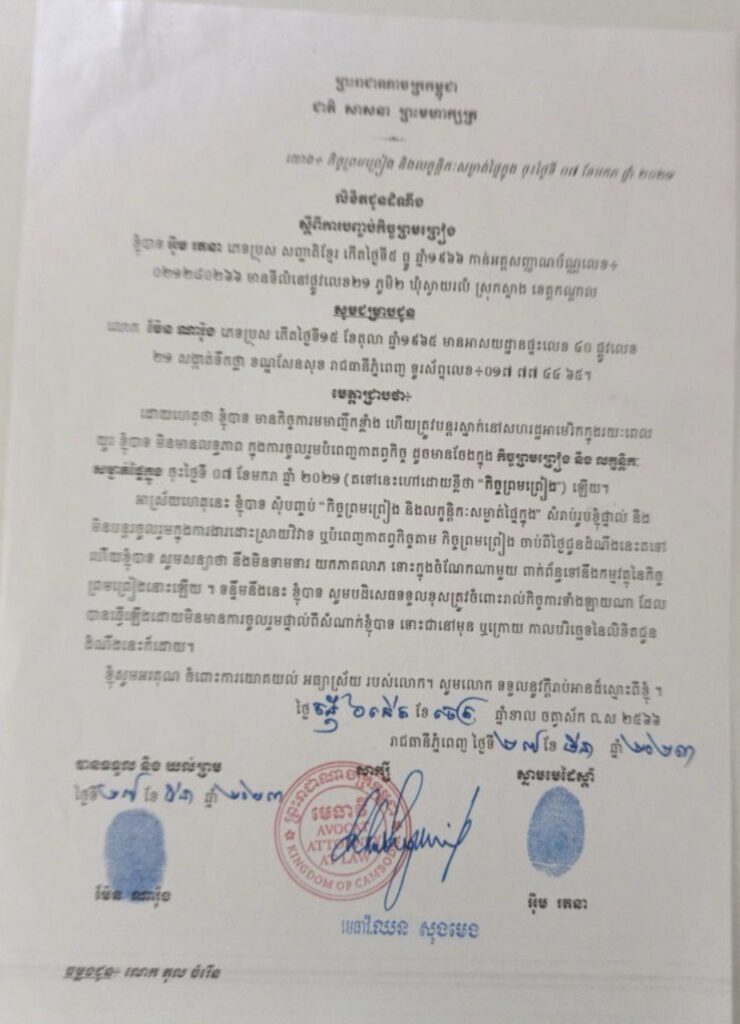 ព្រះរាជាណាចក្រកម្ពុជា
ជាតិ សាសនា ព្រះមហាក្សត្រ
យោង÷ កិច្ចព្រមព្រៀង និងលក្ខន្តិកៈសម្ងាត់ផ្ទៃក្នុង ចុះថ្ងៃទី ០៧ ខែមករា ឆ្នាំ ២០២១
លិខិតជូនដំណឹង
ស្តីពីការបញ្ចប់កិច្ចព្រមព្រៀង
ខ្ញុំបាទ អ៊ិម រតនា ភេទប្រុស សញ្ជាតិខ្មែរ កើតថ្ងៃទី៥ ធ្នូ ឆ្នាំ១៩៦៦ កាន់អត្តសញ្ញាណប័ណ្ណលេខ÷
០២១២៨០២៦៦ មានទីលំនៅផ្លូវលេខ២១ ភូមិ២ ឃុំស្វាយរលំ ស្រុកស្អាង ខេត្តកណ្តាល
សូមជម្រាបជូន
លោក ម៉ែន ណារ៉ុង ភេទប្រុស កើតថ្ងៃទី១៥ ខែតុលា ឆ្នាំ១៩៦៥ មានអាសយដ្ឋានផ្ទះលេខ ៤០ ផ្លូវលេខ
២១ សង្កាត់ទឹកថ្លា ខណ្ឌសែនសុខ រាជធានីភ្នំពេញ ទូរស័ព្ទលេខ÷០១៧ ៧៧ ៤៤ ៦៥។
មេត្តាជ្រាបថា÷
ដោយហេតុថា ខ្ញុំបាទ មានកិច្ចការមមាញឹកខ្លាំង ហើយត្រូវបន្តរស្នាក់នៅសហរដ្ឋអាមេរិកក្នុងរយៈពេល
យូរ ខ្ញុំបាទ មិនមានលទ្ធភាព ក្នុងការចូលរួមបំពេញកាតព្វកិច្ច ដូចមានចែងក្នុង កិច្ចព្រមព្រៀង និង លក្ខន្តិកៈ
សម្ងាត់ផ្ទៃក្នុង ចុះថ្ងៃទី ០៧ ខែមករា ឆ្នាំ ២០២១ (តទៅនេះហៅដោយខ្លីថា "កិច្ចព្រមព្រៀង") ឡើយ។
អាស្រ័យហេតុនេះ ខ្ញុំបាទ សុំបញ្ចប់ "កិច្ចព្រមព្រៀង និងលក្ខន្តិកៈសម្ងាត់ផ្ទៃក្នុង" សំរាប់រូបខ្ញុំផ្ទាល់ និង
មិនបន្តរចូលរួមក្នុងការងារដោះស្រាយវិវាទ ឬបំពេញកាតព្វកិច្ចតាម កិច្ចព្រមព្រៀង ចាប់ពីថ្ងៃជូនដំណឹងនេះតទៅ
ហើយខ្ញុំបាទ សូមសន្យាថា នឹងមិនទាមទារ យកភាគលាភ ទោះក្នុងចំណែកណាមួយ ពាក់ព័ន្ធទៅនឹងកម្មវត្ថុនៃកិច្ច
ព្រមព្រៀងនោះឡើយ ។ ទន្ទឹមនឹងនេះ ខ្ញុំបាទ សូមបដិសេធទទួលខុសត្រូវចំពោះរាល់កិច្ចការទាំងឡាយណា ដែល
បានធ្វើឡើងដោយមិនមានការចូលរួមផ្ទាល់ពីសំណាក់ខ្ញុំបាទ ទោះជានៅមុន ឬក្រោយ កាលបរិច្ឆេទនៃលិខិតជូន
ដំណឹងនេះក៏ដោយ។
ខ្ញុំសូមអរគុណ ចំពោះការយោគយល់ អធ្យាស្រ័យ របស់លោក។ សូមលោក ទទួលនូវក្តីរាប់អានដ៏ស្មោះពីខ្ញុំ ។
ថ្ងៃ ៦កើត ខែ ចេត្រ ឆ្នាំខាល ចត្វាស័ក ព.ស ២៥៦៦
រាជធានីភ្នំពេញ ថ្ងៃទី ២៧ ខែ មីនា ឆ្នាំ ២០២៣
បានទទួល និង យល់ព្រម
សាក្សី
ស្នាមមេដៃស្តាំ
ថ្ងៃទី ២៧ ខែ មីនា ឆ្នាំ ២០២៣
ព្រះរាជាណាចក្រកម្ពុជា
មេធាវី
AVOCAT
ATTORNEY
AT LAW
KINGDOM OF CAMBODIA
ម៉ែន ណារ៉ុង
អ៊ិម រតនា
មេធាវី.ឈន សុងមេង
ចម្លងជូន÷ លោក តុល ចំរើន